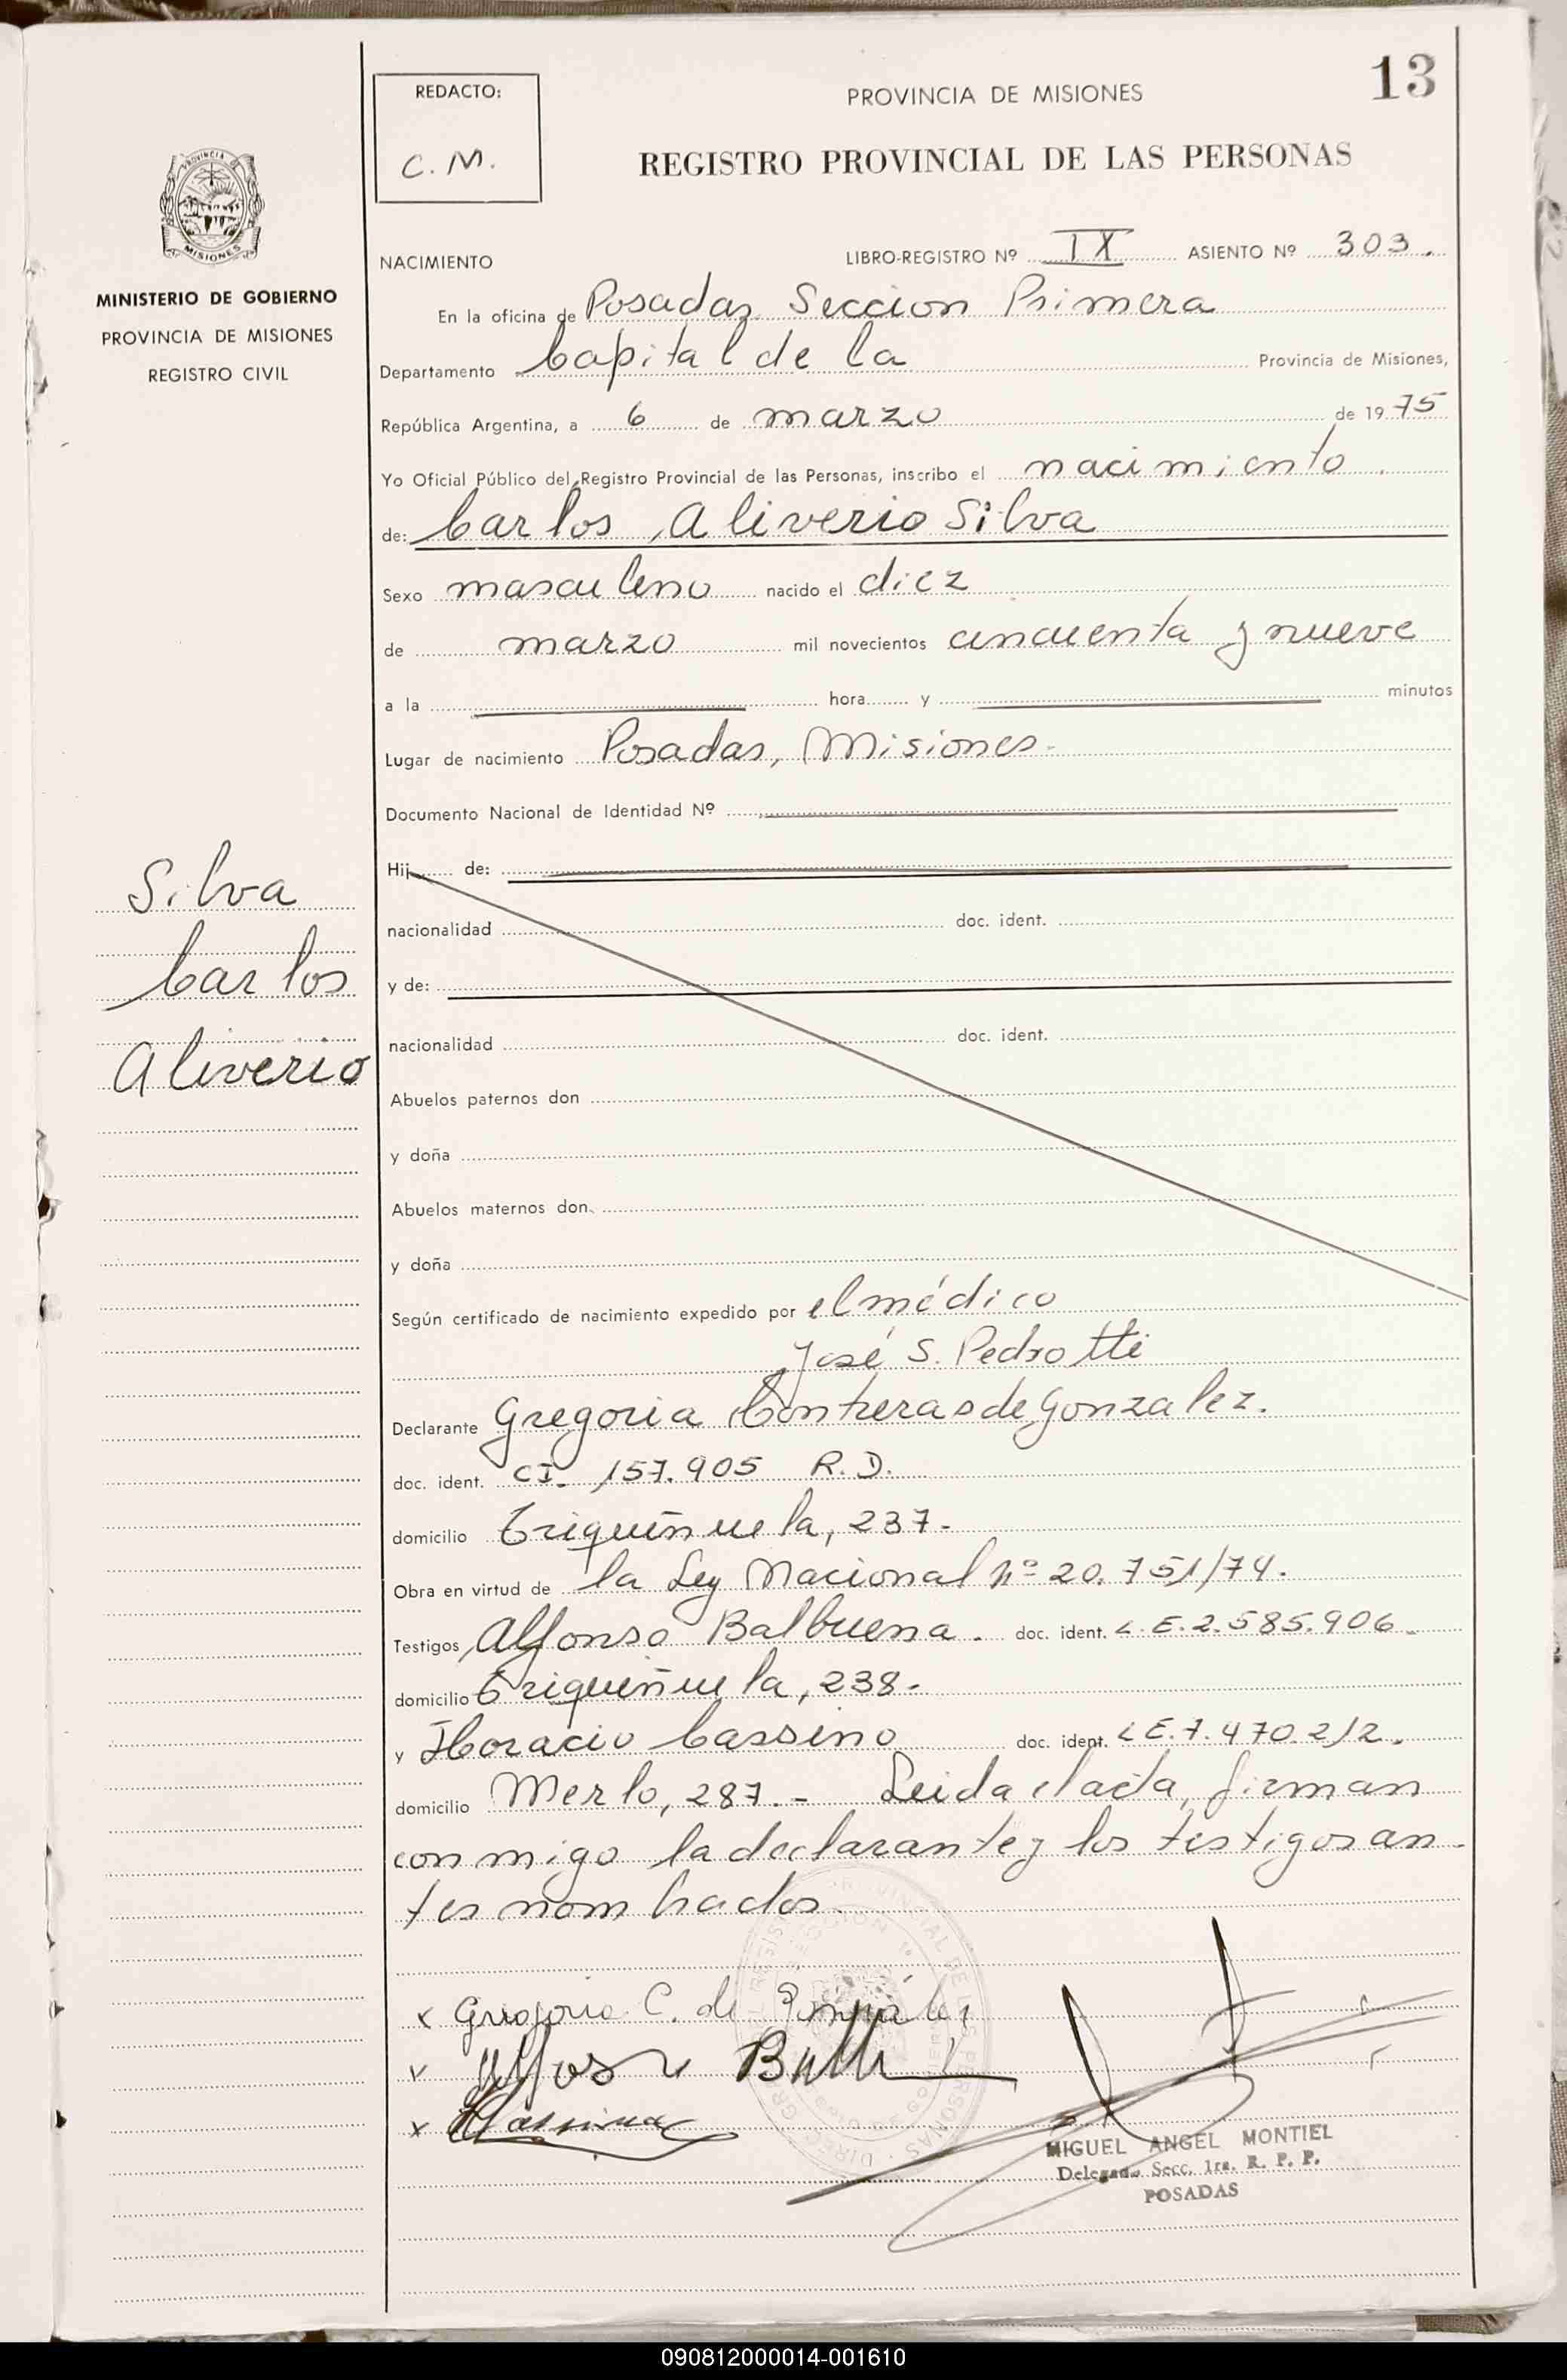 13
REDACTO:
C. M.
PROVINCIA DE MISIONES
REGISTRO PROVINCIAL DE LAS PERSONAS
PROVINCIA DE
MISIONES
MINISTERIO DE GOBIERNO
PROVINCIA DE MISIONES
REGISTRO CIVIL
NACIMIENTO LIBRO-REGISTRO Nº IX ASIENTO Nº 303.
En la oficina de Posadas Seccion Primera
Departamento Capital de la Provincia de Misiones,
República Argentina, a 6 de marzo de 1975
Yo Oficial Público del Registro Provincial de las Personas, inscribo el nacimiento
de: Carlos Aliverio Silva
Sexo masculino nacido el diez
de marzo mil novecientos cincuenta y nueve
a la hora y minutos
Lugar de nacimiento Posadas, Misiones.
Documento Nacional de Identidad Nº
Silva
Carlos
Aliverio
Hij de:
nacionalidad doc. ident.
y de:
nacionalidad doc. ident.
Abuelos paternos don
y doña
Abuelos maternos don
y doña
Según certificado de nacimiento expedido por el médico
José S. Pedrotti
Declarante Gregoria Contreras de Gonzalez.
doc. ident. CI. 157.905 R.D.
domicilio 237.
Obra en virtud de la Ley Nacional nº 20.751/74.
Testigos Alfonso Balbuena. doc. ident. L.E. 2.585.906.
domicilio 238.
y Horacio Cassino doc. ident. L E. 7.470.212.
domicilio Merlo, 287.- Leida el acta, firman
conmigo la declarante y los testigos an-
tes nombrados.
x Gregoria C. de Gonzáles
MIGUEL ANGEL MONTIEL
Delegado Secc. 1ra. R. P. P.
POSADAS
090812000014-001610